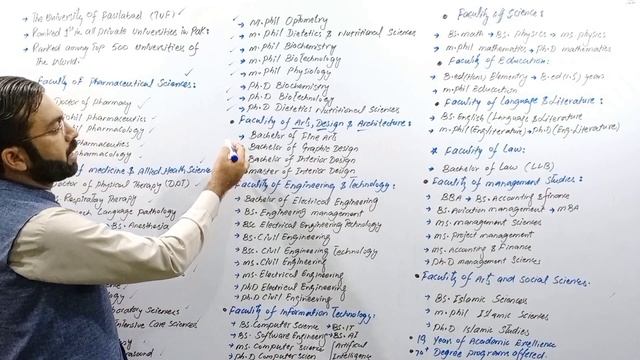 → The University of Faisalabad (TUF)
→ Ranked 1st in all private universities in Pak:
→ Ranked among Top 500 universities of the World:
Faculty of Pharmaceutical Sciences:
Doctor of Pharmacy
Phil Pharmaceutics
Pharmacology
Pharmaceutics
Pharmacology
of medicine & Allied Health Scien
Doctor of Physical Therapy (DPT)
Respiratory Therapy
ech Language Pathology
BS. Anesthesia
boratory Sciences
Intensive Care Sciences
→ M.phil Optometry
→ M.phil Dietetics & Nutritional Sciences
→ M.phil Biochemistry
→ M.phil Biotechnology
→ M.phil Physiology
→ Ph.D Biochemistry
→ Ph.D Biotechnology
→ Ph.D Dietetics Nutritional Sciences
• Faculty of Arts, Design & Architecture:
→ Bachelor of Fine Arts
→ Bachelor of Graphic Design
→ Bachelor of Interior Design
→ Master of Interior Design
Faculty of Engineering & Technology:
→ Bachelor of Electrical Engineering
→ BS. Engineering management
→ BSc Electrical Engineering Technology
→ BS. Civil Engineering
→ BSc. Civil Engineering Technology
→ MS. Civil Engineering
→ MS. Electrical Engineering
→ PhD Electrical Engineering
→ PhD Civil Engineering
Faculty of Information Technology:
→ BS. Computer Science → BS. IT
→ BS. Software Engineering → BS. AI
→ MS. Computer Science (Artificial
→ Ph.D Computer Scien Intelligence
• Faculty of Sciences:
→ BS. math → BS. Physics → MS. Physics
→ M.phil mathematics → Ph.D mathematics
• Faculty of Education:
→ B.ed (Hons) Elementry → B.ed (1.5) years
→ M.phil Education
• Faculty of Language & Literature:
→ BS. English (Language & Literature
→ M.phil (Eng: literature) → Ph.D (Eng: Literature)
* Faculty of Law:
→ Bachelor of Law (LLB)
• Faculty of management Studies:
→ BBA → BS. Accounting & finance
→ BS. Aviation management → MBA
→ MS. management Sciences
→ MS. Project management
→ MS. Accounting & Finance
→ Ph.D management Sciences
• Faculty of Arts and Social Sciences.
→ BS. Islamic Sciences
→ M.phil Islamic Sciences
→ Ph.D Islamic Studies
• 19 Year of Academic Excellence
• 70+ Degree programs offered